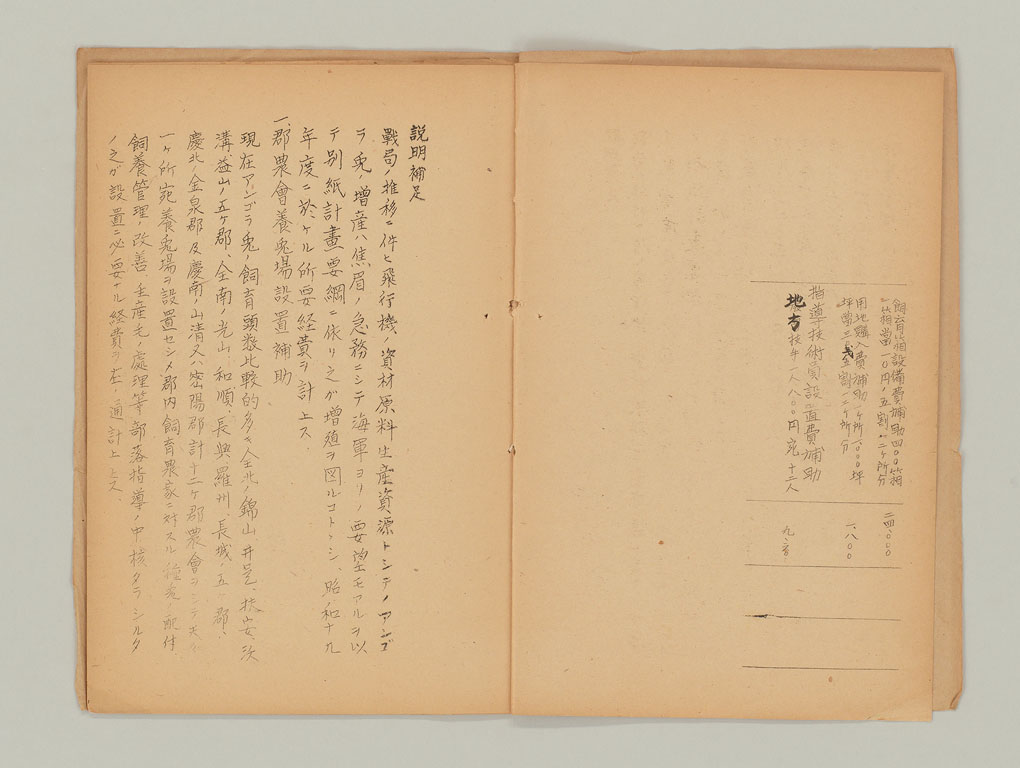 飼育箱設備費補助四〇〇箱
一箱當一〇円ノ五割一二ヶ所分
二四〇〇〇
用地購入費補助一ヶ所一〇〇〇坪
坪當三円五割一二ヶ所分
一八〇〇
指導技術員設置費補助
地方技手一人八〇〇円宛十二人
九六〇〇
説明補足
戰局ノ推移ニ伴ヒ飛行機ノ資材原料生産資源トシテノアンゴ
ラ兎ノ増産ハ焦眉ノ急務ニシテ海軍ヨリノ要望モアルヲ以
テ別紙計畫要綱ニ依リ之ガ増殖ヲ図ルコトトシ、昭和十九
年度ニ於ケル所要経費ヲ計上ス
一、郡農會養兎場設置補助
現在アンゴラ兎ノ飼育頭数比較的多キ全北ノ錦山井邑、扶安、沃
溝益山ノ五ケ郡、全南ノ光山、和順、長興羅州、長城ノ五ヶ郡、
慶北ノ金泉郡及慶南ノ山清又ハ密陽郡計十二ヶ郡農會ヲシテ夫々
一ヶ所宛養兎場ヲ設置セシメ郡内飼育農家ニ対スル種兎ノ配付、
飼養管理ノ改善、生産毛ノ處理等部落指導ノ中核タラシルタ
ノ之ガ設置ニ必要ナル経費ヲ左ノ通計上ス